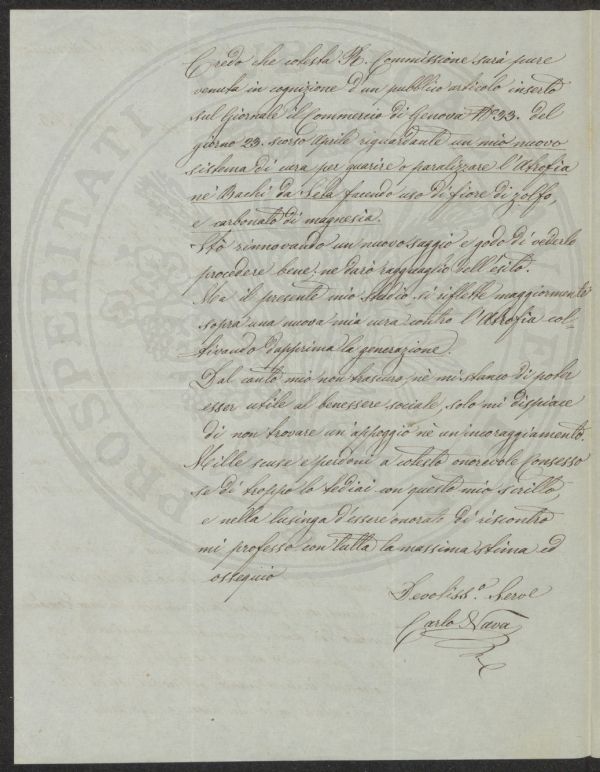 Credo che cotesta R. Commissione sarà pure
venuta in cognizione d'un pubblico articolo inserto
sul Giornale il Commercio di Genova No 33. del
giorno 23. scorso Aprile riguardante un mio nuovo
sistema di cura per guarire o paralizzare l'Atrofia
ne' Bachi da Seta facendo uso di fiore di zolfo,
e carbonato di magnesia.
Stò rinnovando un nuovo saggio e godo di vederlo
procedere bene. ne darò ragguaglio dell'esito.
Ma il presente mio studio si riflette maggiormente
sopra una nuova mia cura contro l'Atrofia col-
tivando dapprima la generazione.
Dal canto mio non trascuro, nè mi stanco di poter
esser utile al benessere sociale, solo mi dispiace
di non trovare un'appoggio nè un'incoraggiamento.
Mille scuse e perdoni a cotesto onorevole Consesso
se di troppo lo tediai con questo mio scritto,
e nella lusinga d'essere onorato di riscontro
mi professo con tutta la massima stima ed
ossequio
Devotiss.o Serve
Carlo Nava
PROSPERITATI